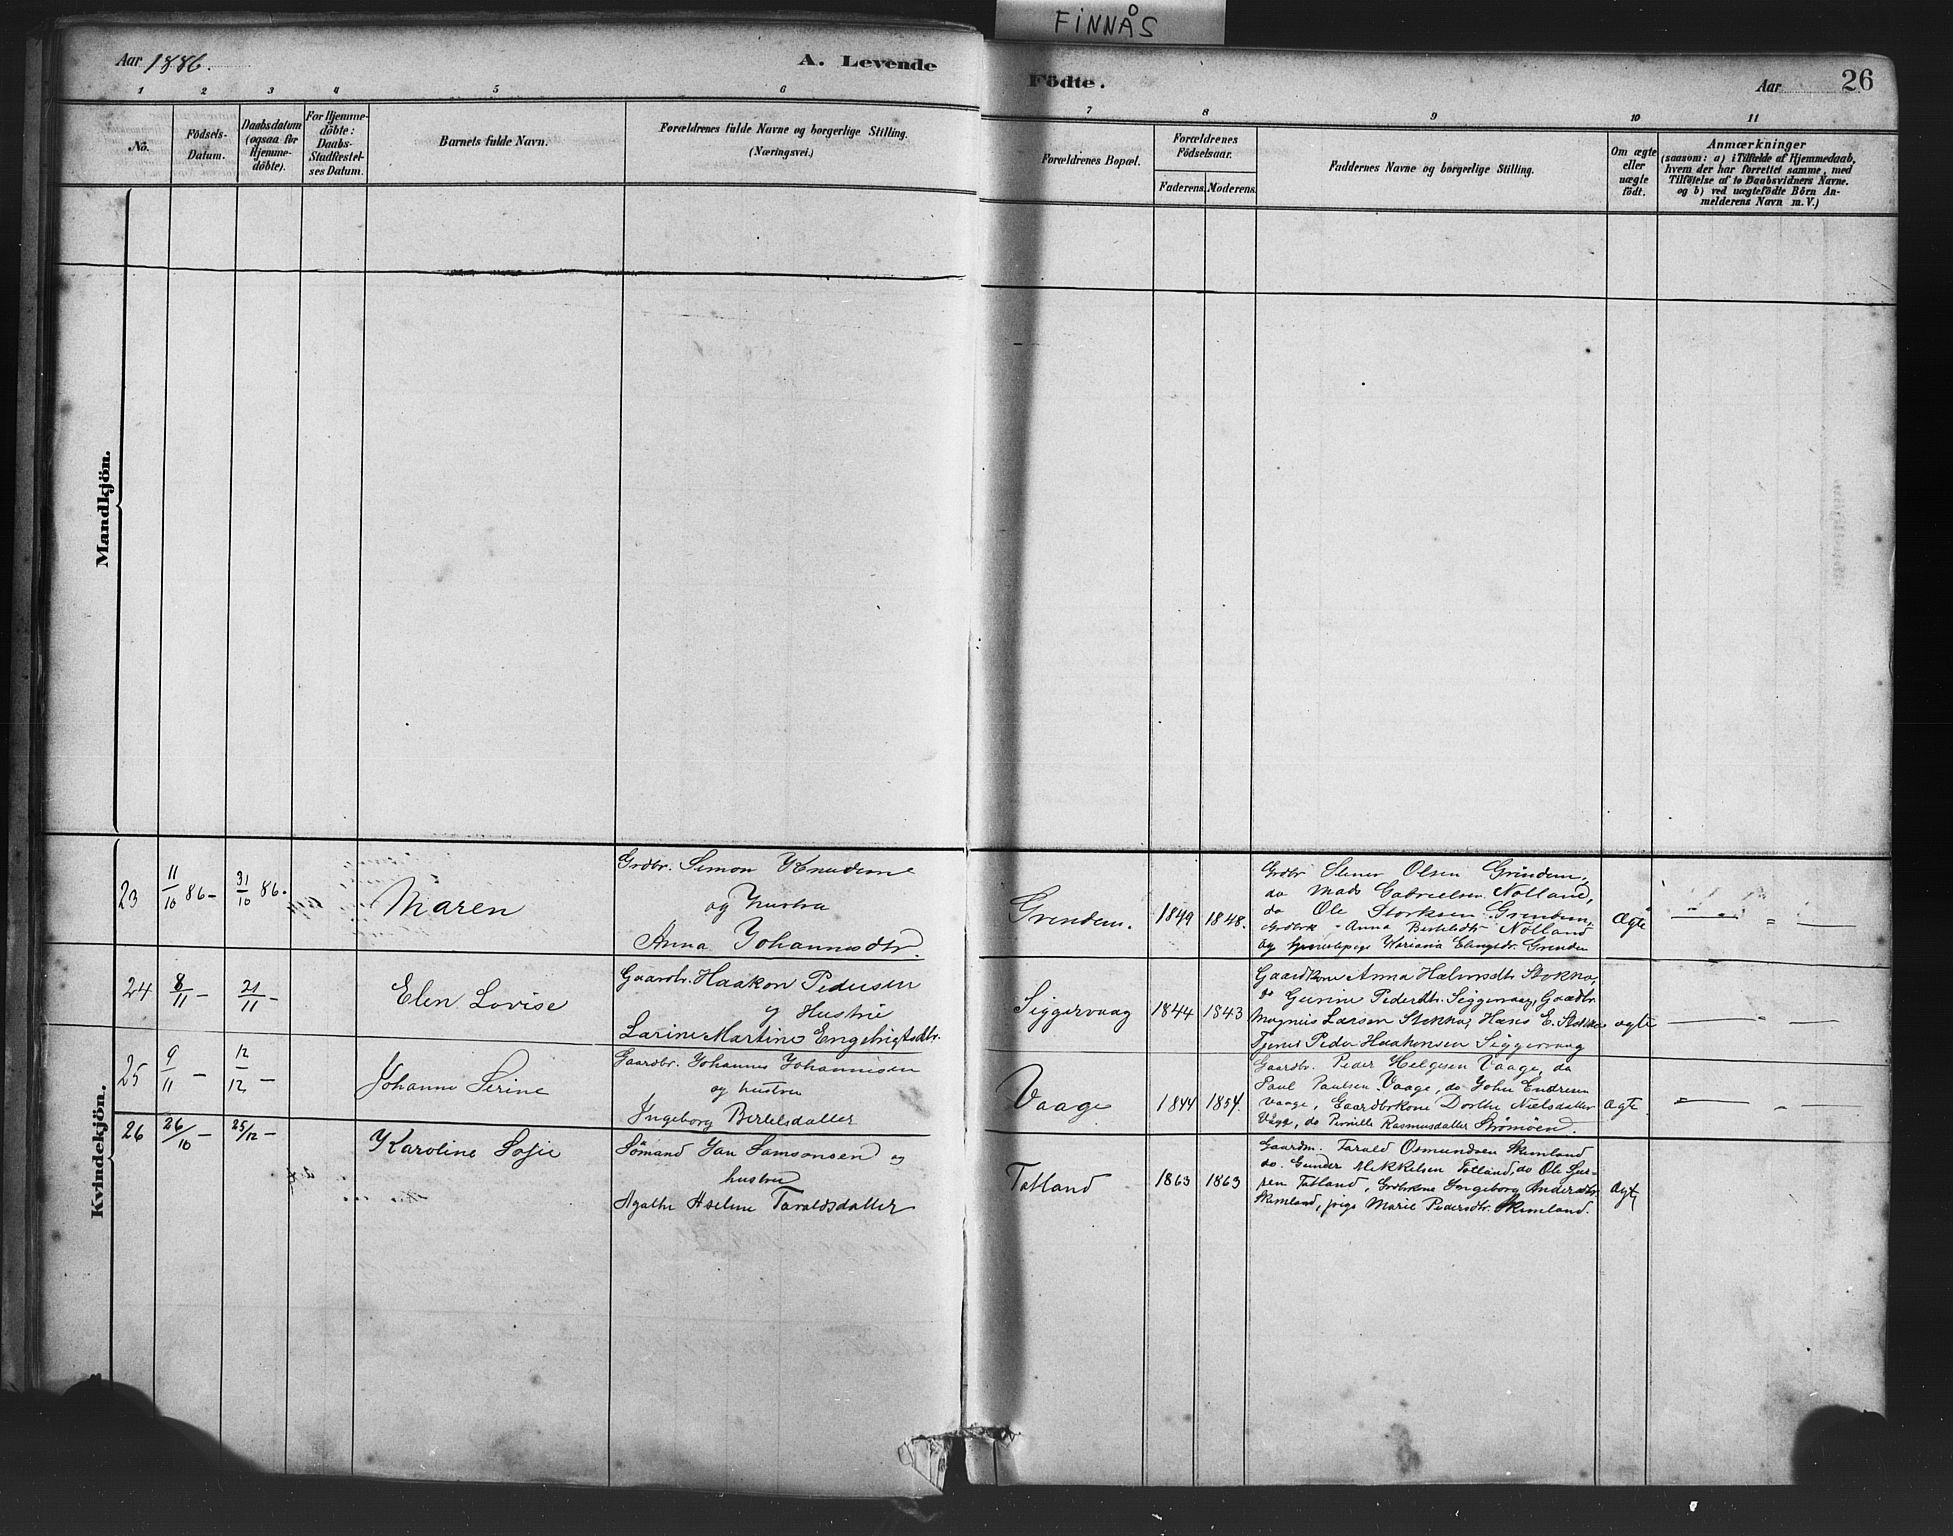 FINNÅS
Aar 1886.
A. Levende
Födte.
Aar
26
1 2 3 4 5 6
7 8 9 10 11
No.
Födsels-
Datum.
Daabsdatum
(ogsaa for
Hjemme-
döbte).
For Hjemme-
döbte:
Daabs-
Stadfæstel-
ses Datum.
Barnets fulde Navn.
Forældrenes fulde Navne og borgerlige Stilling.
(Næringsvei.)
Forældrenes Bopæl.
Forældrenes
Födselsaar.
Faderens. Moderens.
Faddernes Navne og borgerlige Stilling.
Om ægte
eller
uægte
födt.
Anmærkninger
(saasom: a) i Tilfælde af Hjemmedaab,
hvem der har forrettet samme, med
Tilföielse af to Daabsvidners Navne.
og b) ved uægtefödte Börn An-
melderens Navn m. V.)
Mandkjön.
Kvindekjön.
23
11/10 86-
31/10 86.
Maren
Grdbr. Simon Knudsen
og hustru
Anna Johannesdtr.
Grindem.
1849
1848.
Grdbr Stener Olsen Grindem,
do Mads Gabrielsen Notland,
do Ole Storksen Grindem,
Anna Notland
og Grinden
Ægte
24
8/11 -
21/11 -
Elen Lovise
Gaardbr. Haakon Pedersen
og Hustru
Larine Martine Engebrigtsdtr.
Siggervaag
1844
1843
Gaardkone Anna Halvorsdtr Stokka,
do Gurine Pedersdtr. Siggervaag, Gaardbr.
Magnus Larsen Stokka, Hans E. Stokka
Peder Haakonsen Siggervaag
ægte
25
9/11 -
12/12 -
Johanne Serine
Gaardbr. Johannes Johannesen
og hustru
Ingeborg Bertelsdatter
Vaage
1844
1854.
Gaardbr. Peder Helgesen Vaage, do
Paul Paulsen Vaage, do John Endresen
Vaage, Gaardbrkone Dorthe Nielsdatter
Våge, do Pernille Rasmusdatter Strømøen.
Ægte
26
26/10 -
25/12 -
Karoline Sofie
Sømand Jan Samsonsen og
hustru
Agathe Aselene Taraldsdatter
Totland
1863
1863
Gaardm. Tarald Osmundsen Skimland
do. Gunder Mikkelsen Totland, do Ole
Totland, Grdbrkone Ingeborg Andersdtr
Skimland, pige Marie Pedersdtr. Skimland.
Ægte